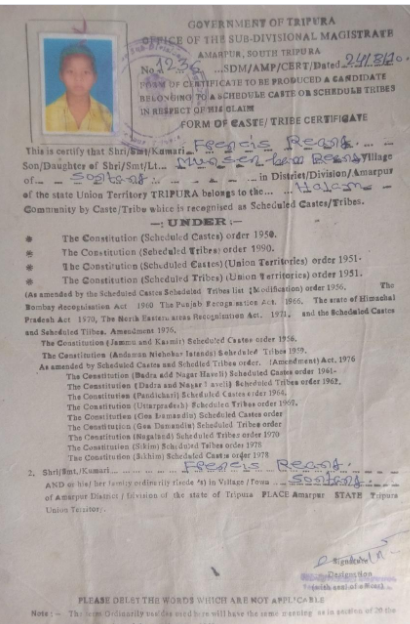 GOVERNMENT OF TRIPURA
OFFICE OF THE SUB-DIVISIONAL MAGISTRATE
AMARPUR, SOUTH TRIPURA
No. 1236 ...SDM/AMP/CERT/Dated 24/8/10
FORM OF CERTIFICATE TO BE PRODUCED A CANDIDATE
BELONGING TO A SCHEDULE CASTE OR SCHEDULE TRIBES
IN RESPECT OF HIS CLAIM
FORM OF CASTE/ TRIBE CERTIFICATE
This is certify that Shri/Smt/Kumari Francis Reang
Son/Daughter of Shri/Smt/Lt... Reang Village
of in District/Division/Amarpur
of the state Union Territory TRIPURA belongs to the... Halam
Community by Caste/Tribe which is recognised as Scheduled Castes/Tribes.
—: UNDER :—
The Constitution (Scheduled Castes) order 1950.
The Constitution (Scheduled Tribes) order 1990.
The Constitution (Scheduled Castes) (Union Territories) order 1951-
The Constitution (Scheduled Tribes) (Union Territories) order 1951.
(As amended by the Scheduled Castes Scheduled Tribes list (Modification) order 1956, The
Bombay Recognisation Act 1960 The Punjab Recognisation Act. 1966. The state of Himachal
Pradesh Act 1970, The North Eastern areas Recognisation Act. 1971, and the Scheduled Castes
and Scheduled Tribes. Amendment 1976.
The Constitution (Jammu and Kasmir) Scheduled Castes order 1956.
The Constitution (Andaman Nichobar Islands) Scheduled Tribes 1959.
As amended by Scheduled Castes and Schedled Tribes order. (Amendment) Act. 1976
The Constitution (Dadra add Nagar Haveli) Scheduled Castes order 1961-
The Constitution (Dadra and Nagar Haveli) Scheduled Tribes order 1962.
The Constitution (Pandichari) Scheduled Castes order 1964.
The Constitution (Uttarpradesh) Scheduled Tribes order
The Constitution (Goa Damandiu) Scheduled Castes order
The Constitution (Goa Damandiu) Scheduled Tribes order
The Constitution (Nagaland) Scheduled Tribes order 1970
The Constitution (Sikim) Scheduled Tribes order 1978
The Constitution (Sikhim) Scheduled Castes order 1978
2. Shri/Smt./Kumari Francis Reang
AND or his/ her family ordinarily in Village / Town
of Amarpur District / Division of the state of Tripura PLACE Amarpur STATE Tripura
Union Territory.
Signature
Designation
(with seal of office)
PLEASE DELET THE WORDS WHICH ARE NOT APPLICABLE
Note :— The term Ordinarily used here will have the same meaning as in section of 20 the